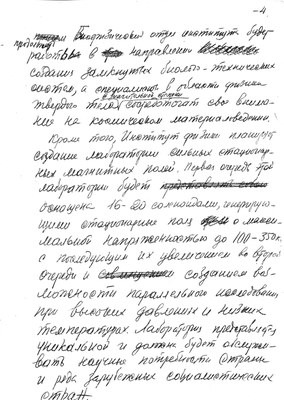 -4
Биофизический отдел института будет
продолжать работы в направлении
создания замкнутых биолого-технических
систем, а специалисты в области физики
твердого тела сосредоточат свое внима-
ние на космическом материаловедении.
Кроме того, Институт физики планирует
создание лаборатории сильных стационар-
ных магнитных полей. Первая очередь этой
лаборатории будет
оснащена 16-20 соленоидами, генерирую-
щими стационарные поля с макси-
мальной напряженностью до 100-350 кэ.
с последующим их увеличением во второй
очереди и созданием воз-
можности параллельного исследования
при высоких давлениях и низких
температурах. Лаборатория представляется
уникальной и должна будет обслужи-
вать научные потребности страны
и ряда зарубежных социалистических
стран.